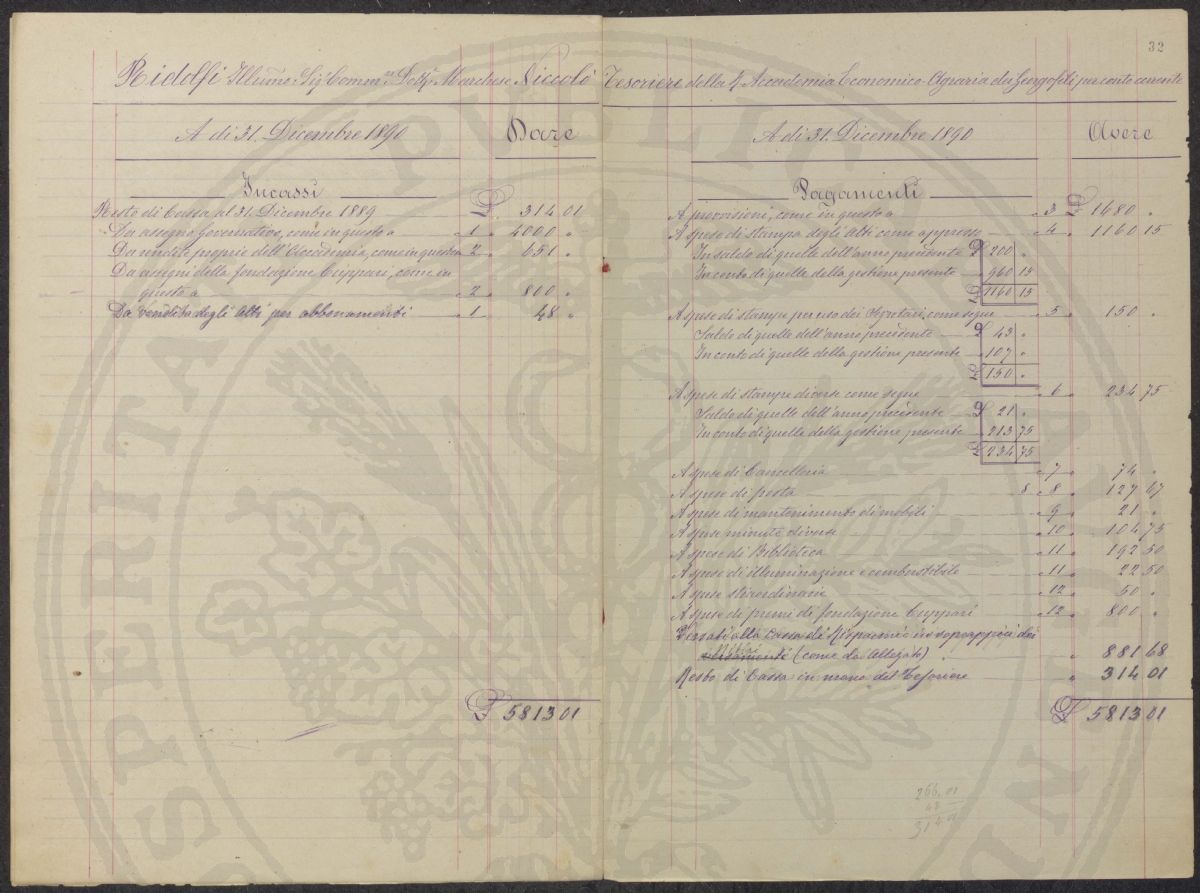 32
Ridolfi Illumo. Sig. Comm. Dott. Marchese Niccolò Tesoriere della R. Accademia Economico-Agraria dei Georgofili, per conto corrente
A dì 31. Dicembre 1890 Dare
Incassi
Resto di Cassa al 31. Dicembre 1889 £ 314 01
Da assegno Governativo, come in questo a 1 " 4000 "
Da rendite proprie dell'Accademia, come in questo a 2 " 651 "
Da assegni della fondazione Cuppari, come in
questo a 2 " 800 "
Da vendita degli Atti per abbonamenti 1 " 48 "
£ 5813 01
A dì 31. Dicembre 1890 Avere
Pagamenti
A provvisioni, come in questo a " 3 £ 1680 "
A spese di stampa degli Atti come appresso " 4 " 1160 15
In saldo di quelle dell'anno precedente £ 200 "
In conto di quelle della gestione presente " 960 15
£ 1160 15
A spese di stampe per uso dei Segretari, come segue " 5 " 150 "
Saldo di quelle dell'anno precedente £ 43 "
In conto di quelle della gestione presente " 107 "
£ 150 "
A spese di stampe diverse come segue " 6 " 234 75
Saldo di quelle dell'anno precedente £ 21 "
In conto di quelle della gestione presente " 213 75
£ 234 75
A spese di Cancelleria " 7 " 74 "
A spese di posta 8 " 8 " 127 67
A spese di mantenimento di mobili " 9 " 21 "
A spese minute diverse " 10 " 104 75
A spese di Biblioteca " 11 " 192 50
A spese di illuminazione e combustibile " 11 " 22 50
A spese straordinarie " 12 " 50 "
A spese di premi di fondazione Cuppari " 12 " 800 "
Versati alla Cassa di Risparmio in soprappiù dei
(come da Allegato) " 881 68
Resto di Cassa in mano del Tesoriere " 314 01
£ 5813 01
266.01
48
314 01